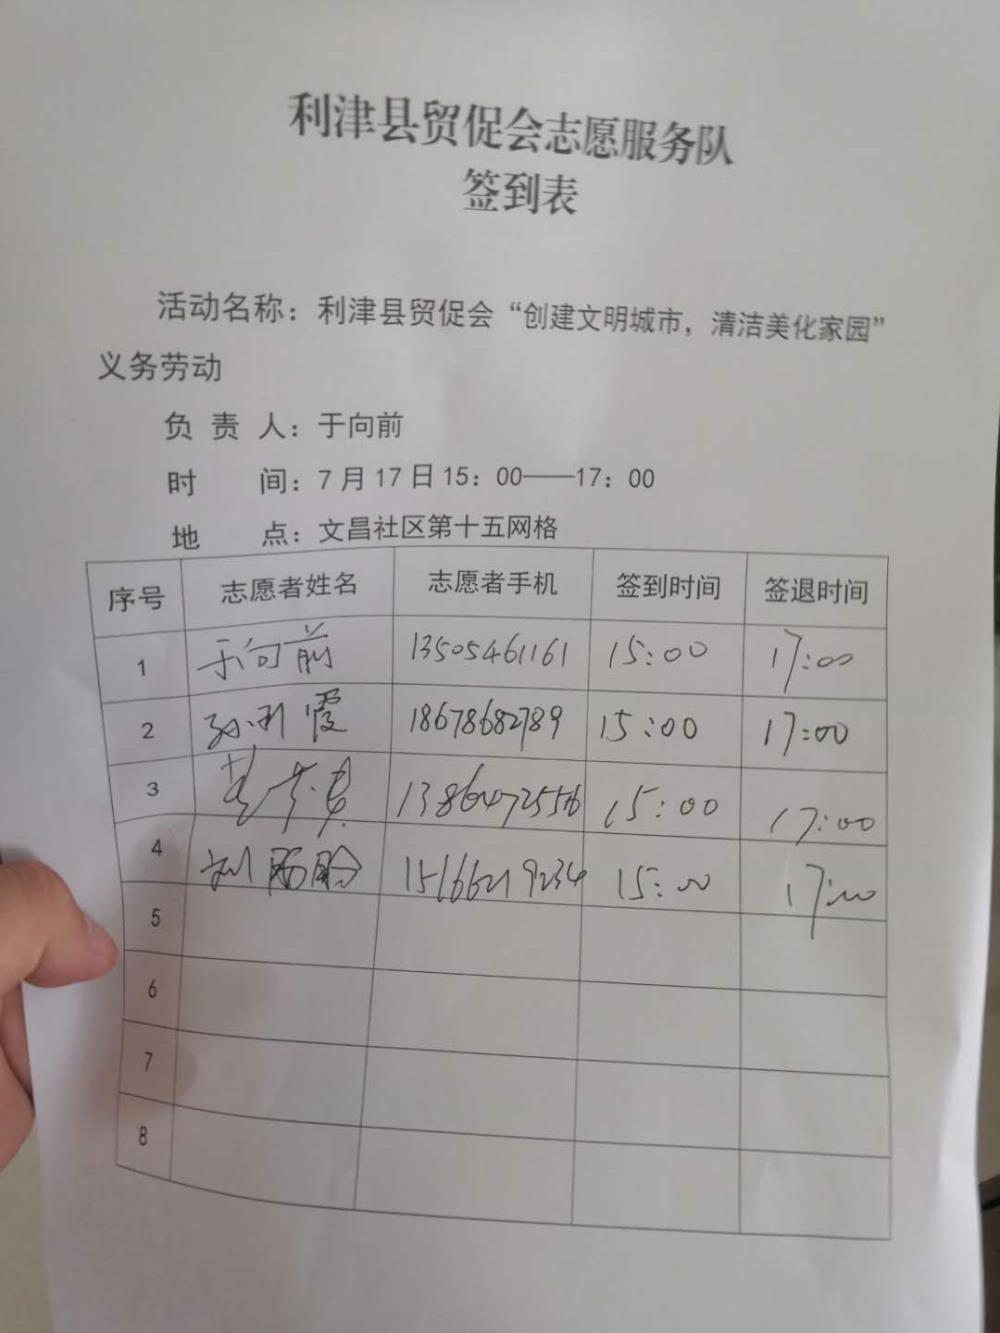 利津县贸促会志愿服务队
签到表
活动名称：利津县贸促会“创建文明城市，清洁美化家园”
义务劳动
负 责 人：于向前
时 间：7月17日15：00——17：00
地 点：文昌社区第十五网格
序号 志愿者姓名 志愿者手机 签到时间 签退时间
1 于向前 13505461161 15:00 17:00
2 孙利霞 18678682789 15:00 17:00
3 13864725516 15:00 17:00
4 15166219234 15:00 17:00
5
6
7
8